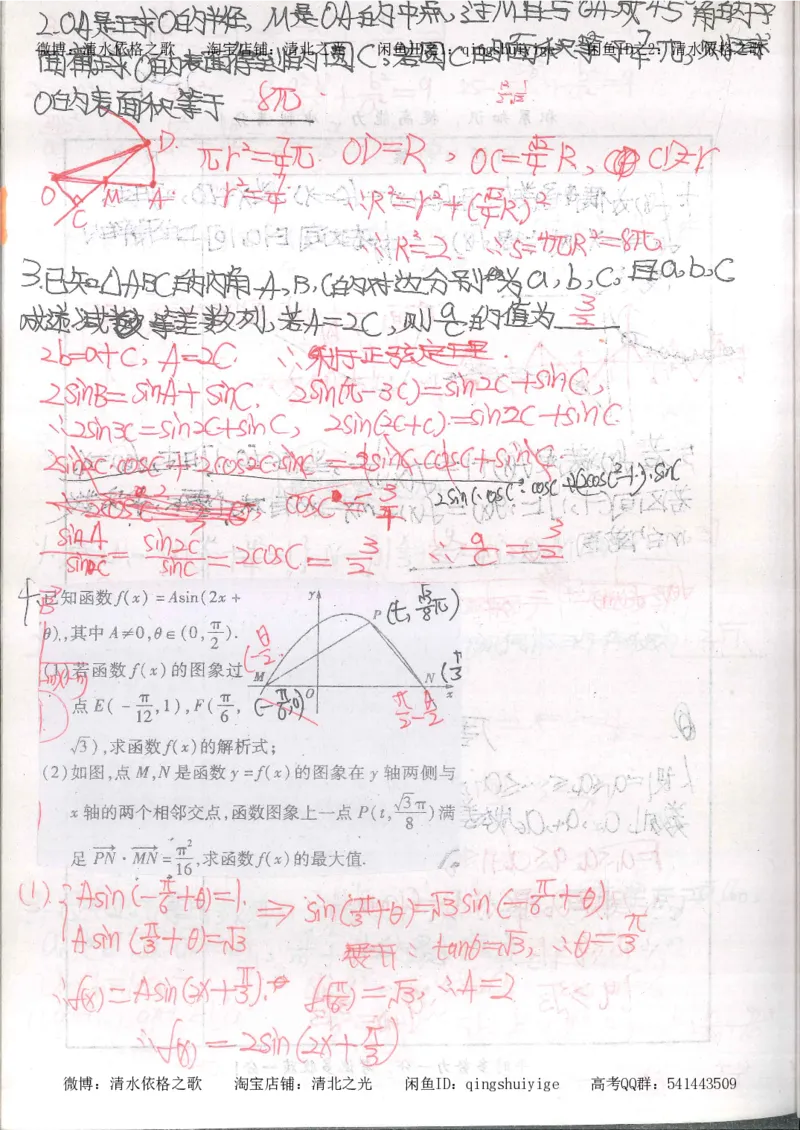 2.OA是球O的半径,M是OA的中点,过M且与OA成45°角的平
面截球O的表面得到圆C,若圆C的面积等于7/4π,则球
微博:清水依格之歌 淘宝店铺:清北之光 闲鱼ID:qingshuiyige
O的表面积等于 8π
D. πr²=7/4π. OD=R, OC=√2/4R, CD=r
O M A r²=7/4 ∴R²=r²+(√2/4R)²
C
∴R²=2. ∴S=4πR²=8π.
3.已知△ABC的内角A,B,C的对边分别为a,b,c,且a,b,c
成递减等差数列,若A=2C,则a/c的值为 3/2
2b=a+c, A=2C. ∴利用正弦定理.
2sinB=sinA+sinC. 2sin(π-3C)=sin2C+sinC,
∴2sin3C=sin2C+sinC, 2sin(2C+C)=sin2C+sinC
2sin2C·cosC+2cos2C·sinC=2sinC·cosC+sinC
cosC=3/4
sinA/sinC=sin2C/sinC=2cosC=3/2 ∴a/c=3/2
4.已知函数f(x)=Asin(2x+
θ),其中A≠0,θ∈(0,π/2).
(1)若函数f(x)的图象过
点E(-π/12,1),F(π/6,
√3),求函数f(x)的解析式;
y P (t,√3/8π)
M O N x
(-π/6,0) π/2-θ/2
(2)如图,点M,N是函数y=f(x)的图象在y轴两侧与
x轴的两个相邻交点,函数图象上一点P(t,√3π/8)满
足PN·MN=π²/16,求函数f(x)的最大值.
(1)∵Asin(-π/6+θ)=1. ⇒ sin(π/3+θ)=√3sin(-π/6+θ)
Asin(π/3+θ)=√3 展开:tanθ=√3,∴θ=π/3
∴f(x)=Asin(2x+π/3). f(π/6)=√3,∴A=2
∴f(x)=2sin(2x+π/3)
微博:清水依格之歌 淘宝店铺:清北之光 闲鱼ID:qingshuiyige 高考QQ群:541443509